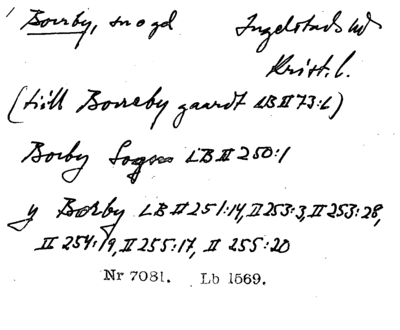 Borrby, sn o gd Ingelstads hd
Krist. l.
(tiill Borreby gaardt LB II 73:2)
Borby Sogn LB II 250:1
y Borby LB II 251:14, II 253:3, II 253:28,
II 254:19, II 255:17, II 255:20
Nr 7081. Lb 1569.